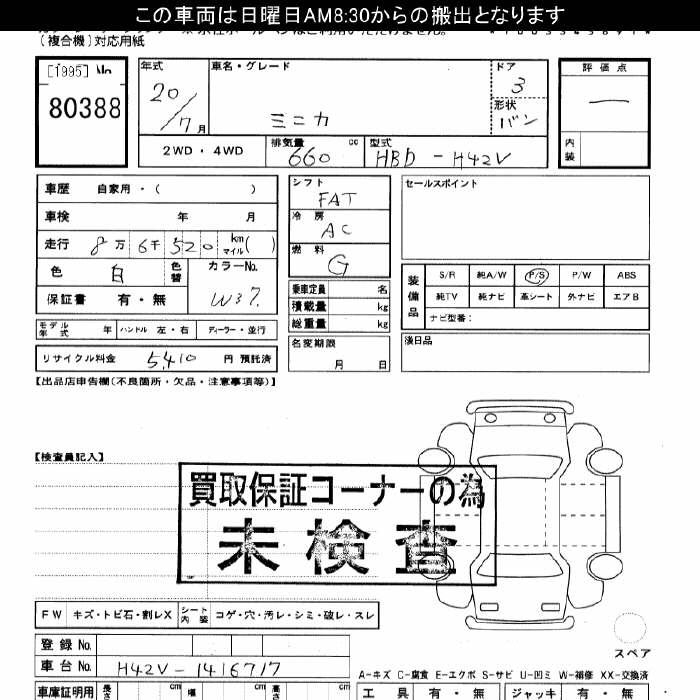 この車両は日曜日AM8:30からの搬出となります
(複合機)対応用紙
[1995] No
80388
年式
20/7月
車名・グレード
ミニカ
ドア
3
形状
バン
評価点
—
内装
2WD・4WD
排気量
660 cc
型式
HBD-H42V
車歴 自家用・( )
車検 年 月
走行 8万6千520 km マイル( )
色 白 色替 カラーNo. W37.
保証書 有・無
モデル年式 年 ハンドル 左・右 ディーラー・並行
リサイクル料金 5,410 円 預託済
シフト
FAT
冷房
AC
燃料
G
乗車定員 名
積載量 kg
総重量 kg
名変期限
月 日
セールスポイント
装備品
S/R 純A/W P/S P/W ABS
純TV 純ナビ 革シート 外ナビ エアB
ナビ型番:
演日品
【出品店申告欄(不良箇所・欠品・注意事項等)】
【検査員記入】
買取保証コーナーの為
未検査
FW キズ・トビ石・割レX シート内装 コゲ・穴・汚レ・シミ・破レ・スレ
スペア
登録No.
車台No. H42V-1416717
A-キズ C-腐食 E-エクボ S-サビ U-凹ミ W-補修 XX-交換済
車庫証明用 長さ cm 幅 cm 高さ cm
工具 有・無 ジャッキ 有・無